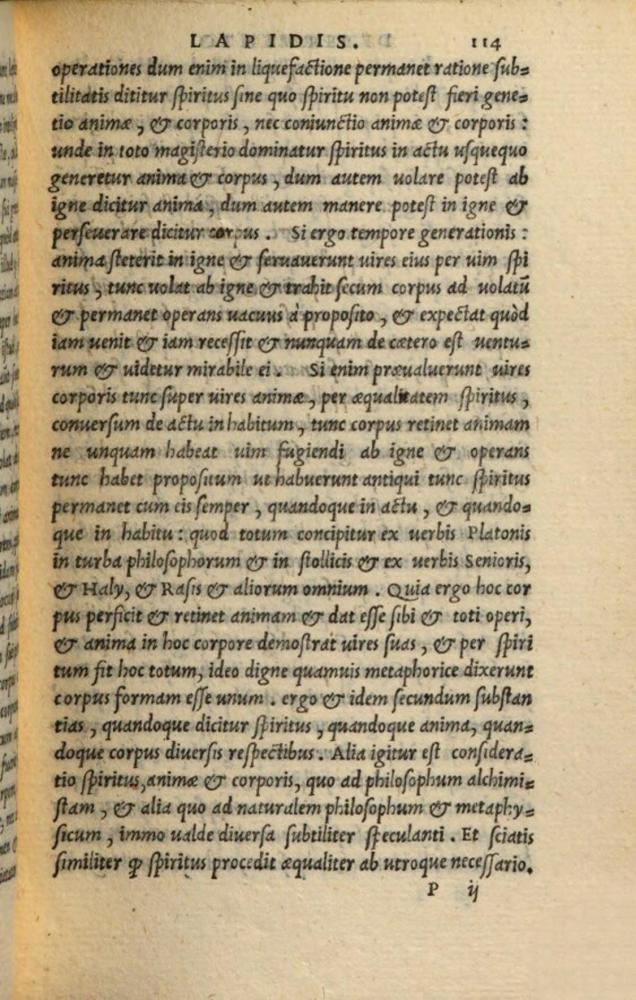 LAPIDIS. 114
operationes dum enim in liquefactione permanet ratione sub=
tilitatis dititur spiritus sine quo spiritu non potest fieri gene=
tio animæ, & corporis, nec coniunctio animæ & corporis:
unde in toto magisterio dominatur spiritus in actu usquequo
generetur anima & corpus, dum autem uolare potest ab
igne dicitur anima, dum autem manere potest in igne &
perseuerare dicitur corpus. Si ergo tempore generationis:
anima steterit in igne & seruauerunt uires eius per uim spi
ritus, tunc uolat ab igne & trahit secum corpus ad uolatū
& permanet operans uacuus à proposito, & expectat quòd
iam uenit & iam recessit & nunquam de cætero est uentu=
rum & uidetur mirabile ei. Si enim præualuerunt uires
corporis tunc super uires animæ, per æqualitatem spiritus,
conuersum de actu in habitum, tunc corpus retinet animam
ne unquam habeat uim fugiendi ab igne & operans
tunc habet propositum ut habuerunt antiqui tunc spiritus
permanet cum eis semper, quandoque in actu, & quando=
que in habitu: quod totum concipitur ex uerbis Platonis
in turba philosophorum & in stollicis & ex uerbis Senioris,
& Haly, & Rasis & aliorum omnium. Quia ergo hoc cor
pus perficit & retinet animam & dat esse sibi & toti operi,
& anima in hoc corpore demostrat uires suas, & per spiri
tum fit hoc totum, ideo digne quamuis metaphorice dixerunt
corpus formam esse unum. ergo & idem secundum substan
tias, quandoque dicitur spiritus, quandoque anima, quan=
doque corpus diuersis respectibus. Alia igitur est considera=
tio spiritus, animæ & corporis, quo ad philosophum alchimi=
stam, & alia quo ad naturalem philosophum & metaphy=
sicum, immo ualde diuersa subtiliter speculanti. Et sciatis
similiter ꝙ spiritus procedit æqualiter ab utroque necessario.
P ij